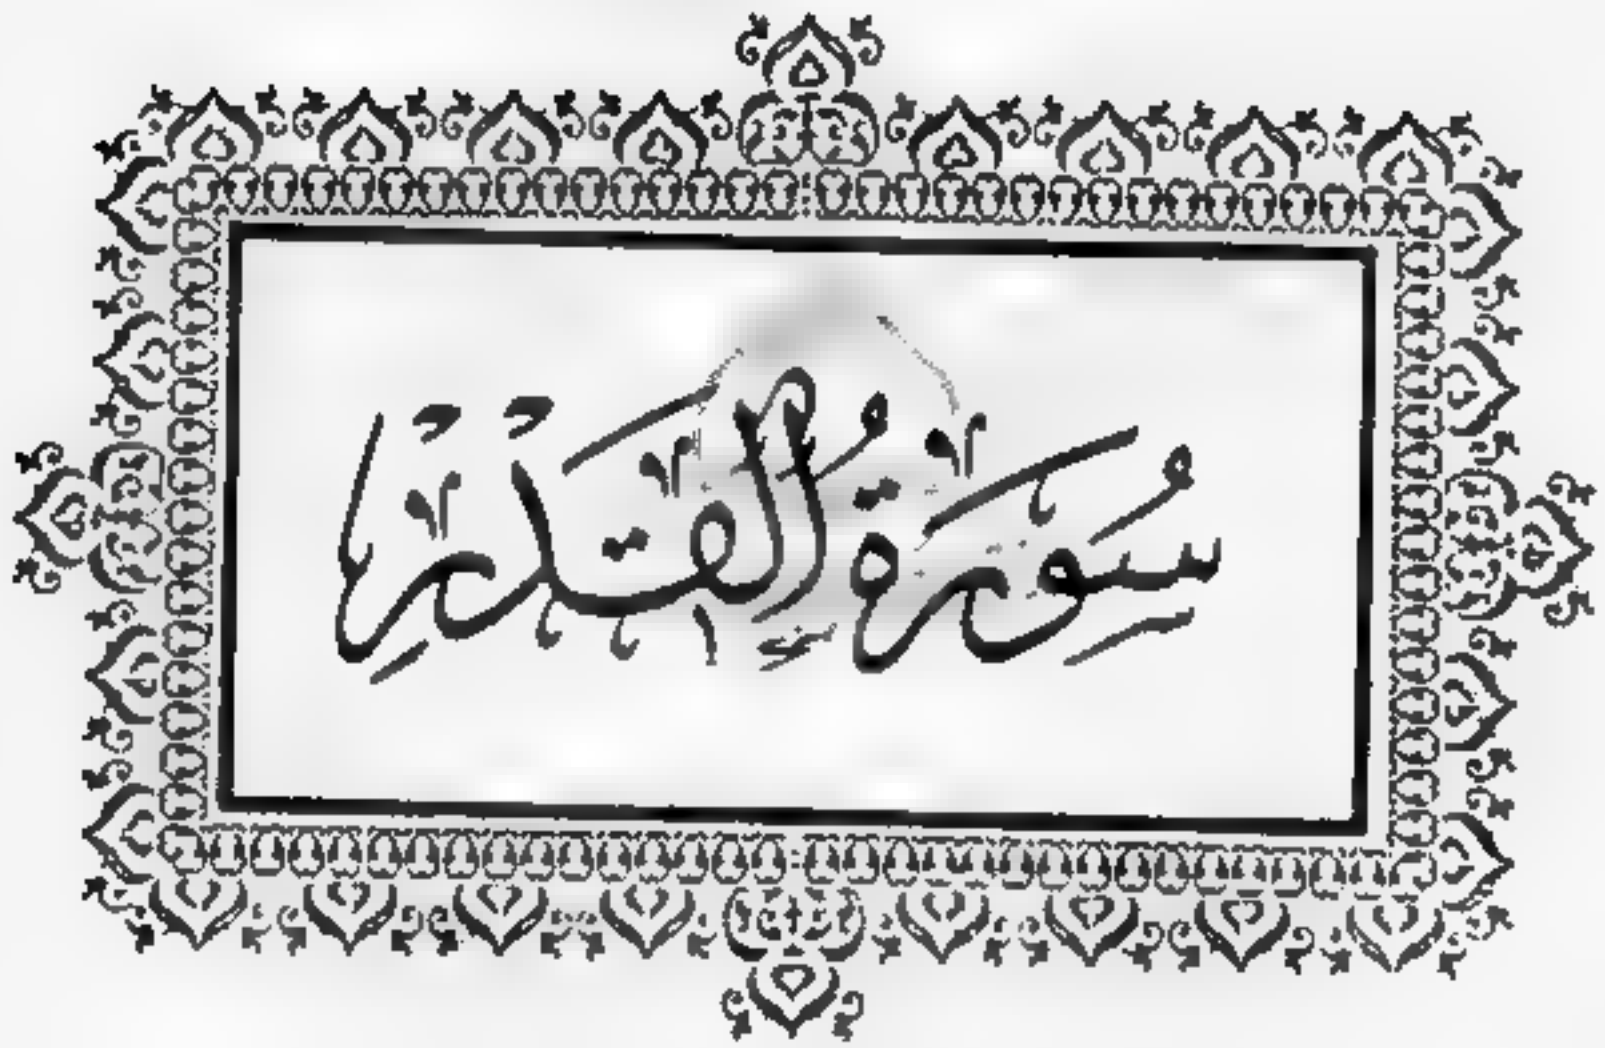 سُورَةُ القَدْرِ